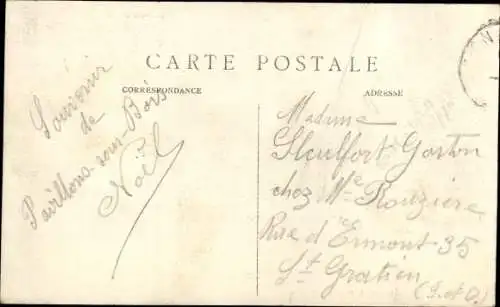 CARTE POSTALE
CORRESPONDANCE
ADRESSE
Souvenir
de
Pavillons-sous-Bois
Noël
Madame
Gaston
chez Me Rouzière
Rue d'Ermont 35
St Gratien
(S. et O.)